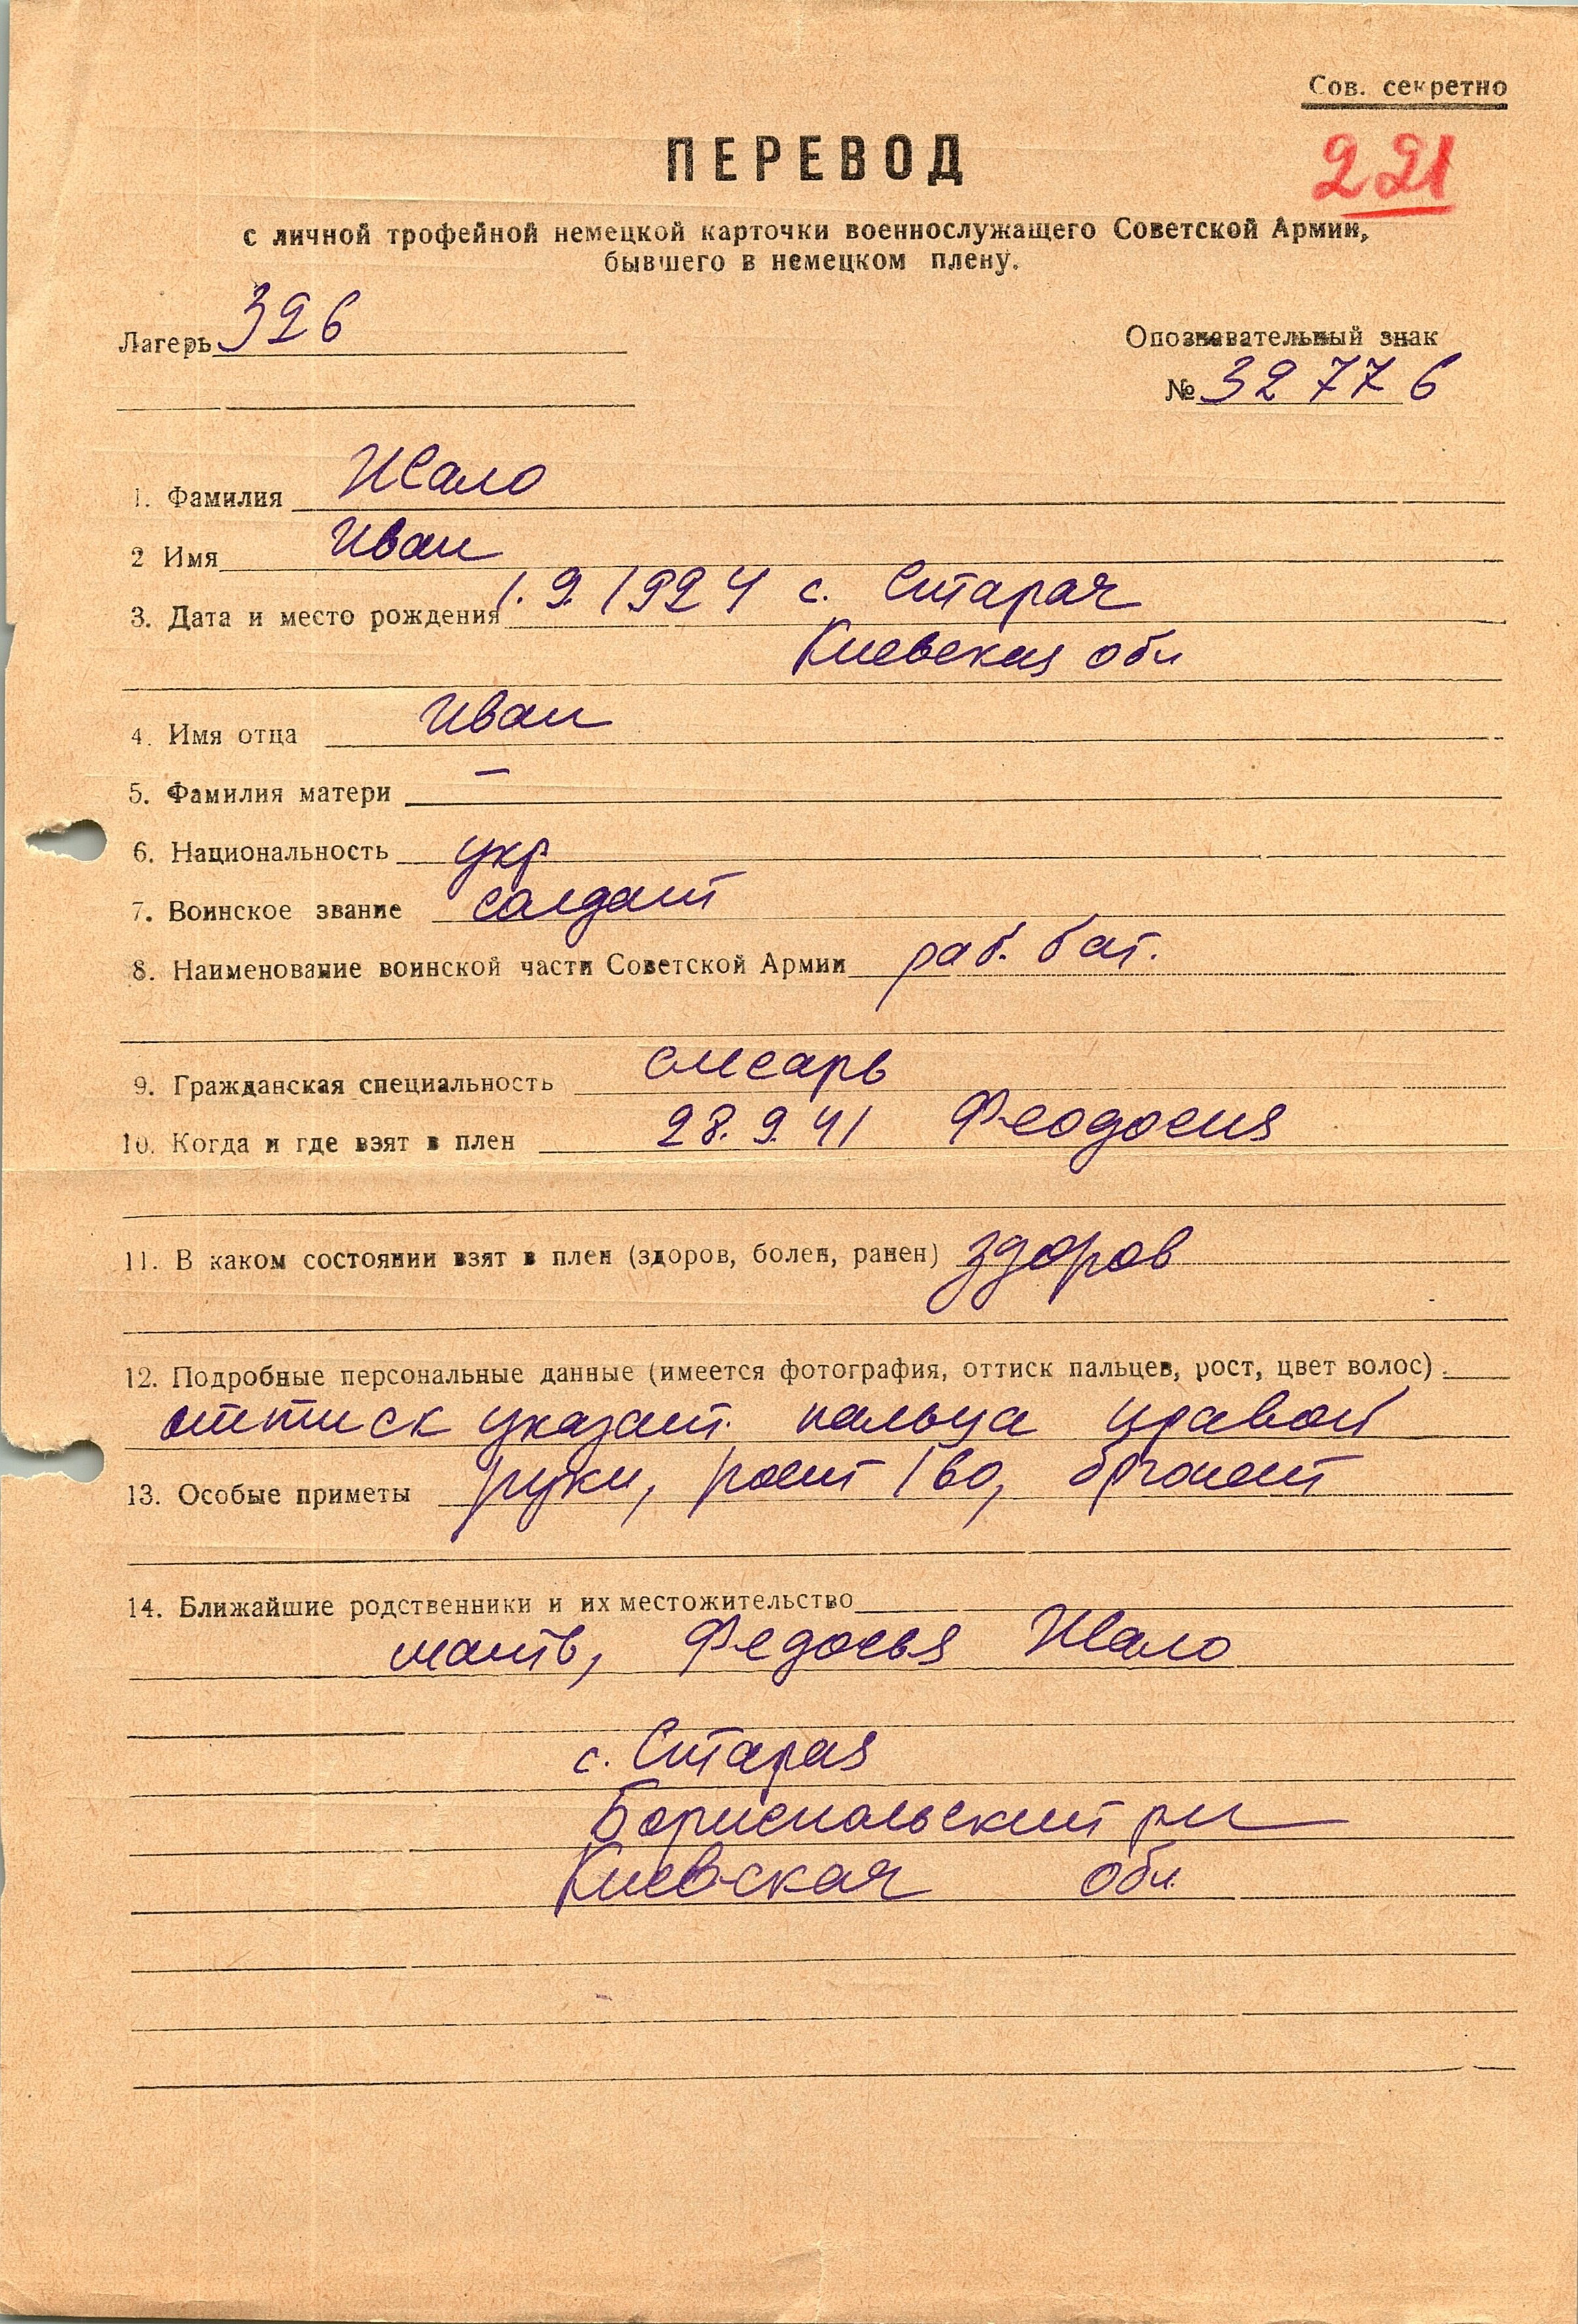 Сов. секретно
ПЕРЕВОД
221
с личной трофейной немецкой карточки военнослужащего Советской Армии,
бывшего в немецком плену.
Лагерь 326
Опознавательный знак
№ 32776
1. Фамилия Жало
2 Имя Иван
3. Дата и место рождения 1.9.1924 с. Старая
Киевская обл
4. Имя отца Иван
5. Фамилия матери –
6. Национальность укр
7. Воинское звание солдат
8. Наименование воинской части Советской Армии раб. бат.
9. Гражданская специальность слесарь
10. Когда и где взят в плен 28.9.41 Феодосия
11. В каком состоянии взят в плен (здоров, болен, ранен) здоров
12. Подробные персональные данные (имеется фотография, оттиск пальцев, рост, цвет волос).
оттиск указат. пальца правой
13. Особые приметы руки, рост 160, брюнет
14. Ближайшие родственники и их местожительство
мать, Федосья Жало
с. Старая
Бориспольский рн
Киевская обл.